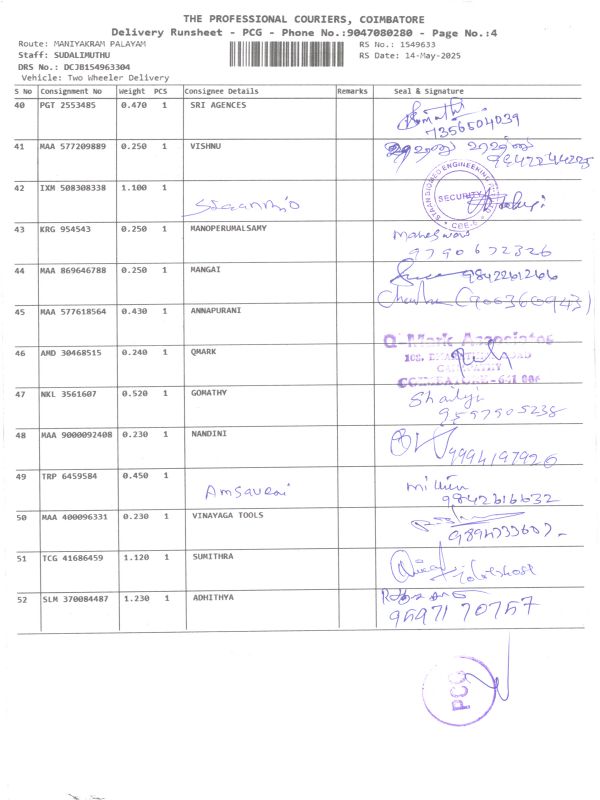 THE PROFESSIONAL COURIERS, COIMBATORE
Delivery Runsheet - PCG - Phone No.:9047080280 - Page No.:4
Route: MANIYAKRAM PALAYAM RS No.: 1549633
Staff: SUDALIMUTHU RS Date: 14-May-2025
DRS No.: DCJB154963304
Vehicle: Two Wheeler Delivery
S No Consignment No Weight PCS Consignee Details Remarks Seal & Signature
40 PGT 2553485 0.470 1 SRI AGENCES
7356504039
41 MAA 577209889 0.250 1 VISHNU
42 IXM 508308338 1.100 1
SECURITY
43 KRG 954543 0.250 1 MANOPERUMALSAMY Maheswari
9790672326
44 MAA 869646788 0.250 1 MANGAI 9842261266
(9003660943)
45 MAA 577618564 0.430 1 ANNAPURANI
46 AMD 30468515 0.240 1 QMARK Q' Mark Associates
COIMBATORE - 641 006
47 NKL 3561607 0.520 1 GOMATHY Shailaji
9597905238
48 MAA 9000092408 0.230 1 NANDINI
9994197926
49 TRP 6459584 0.450 1
Amsaveni 9842616632
50 MAA 400096331 0.230 1 VINAYAGA TOOLS
9894333607
51 TCG 41686459 1.120 1 SUMITHRA
52 SLM 370084487 1.230 1 ADHITHYA
9597170757
PCG